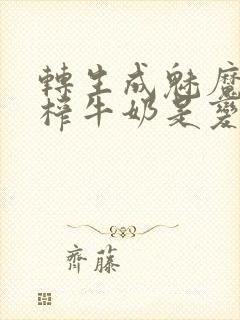 轉生成魅魔
榨牛奶是變
齊藤